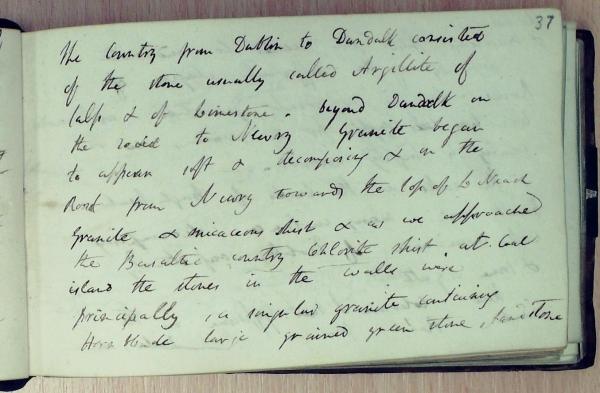 37
The Country from Dublin to Dundalk consisted
of the stone usually called Argillite of
Calp & of Limestone. beyond Dundalk on
the road to Newry Granite began
to appear soft & decomposing & on the
Road from Newry towards the top of L Neach
Granite & micaceous shist & as we approached
the Basaltic country Chlorite Shist at Coal
island the stones in the walls were
principally, a singular granite containing
Hornblende large grained green stone, sandstone